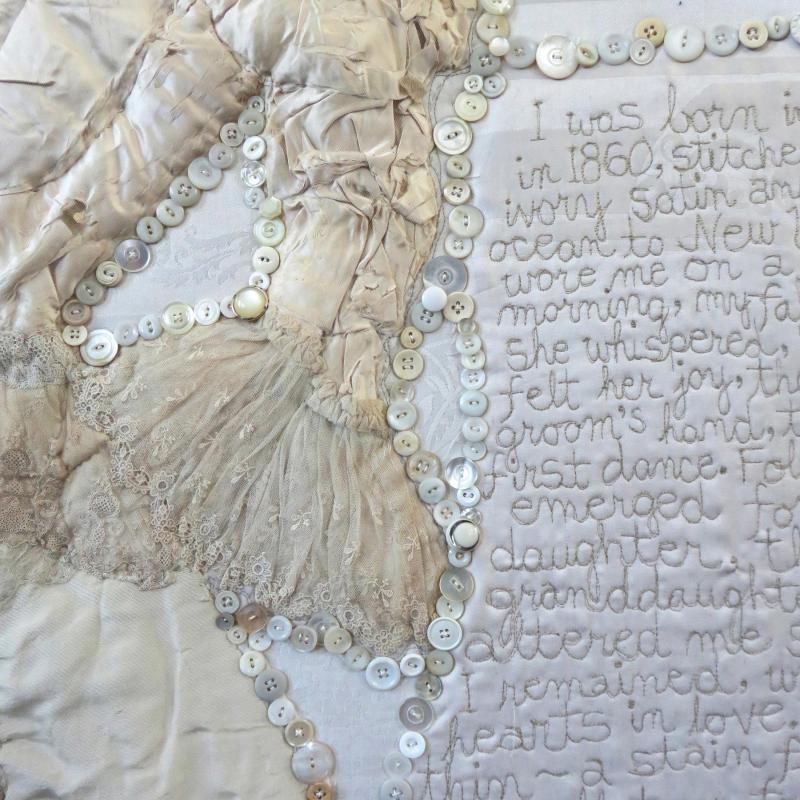 I was born in
in 1860, stitche
ivory satin an
ocean to New
wore me on a
morning, my fa
she whispered,
felt her joy, th
groom's hand, t
first dance. Fol
emerged fo
daughter, th
granddaught
altered me s
I remained, w
hearts in love.
thin - a stain f